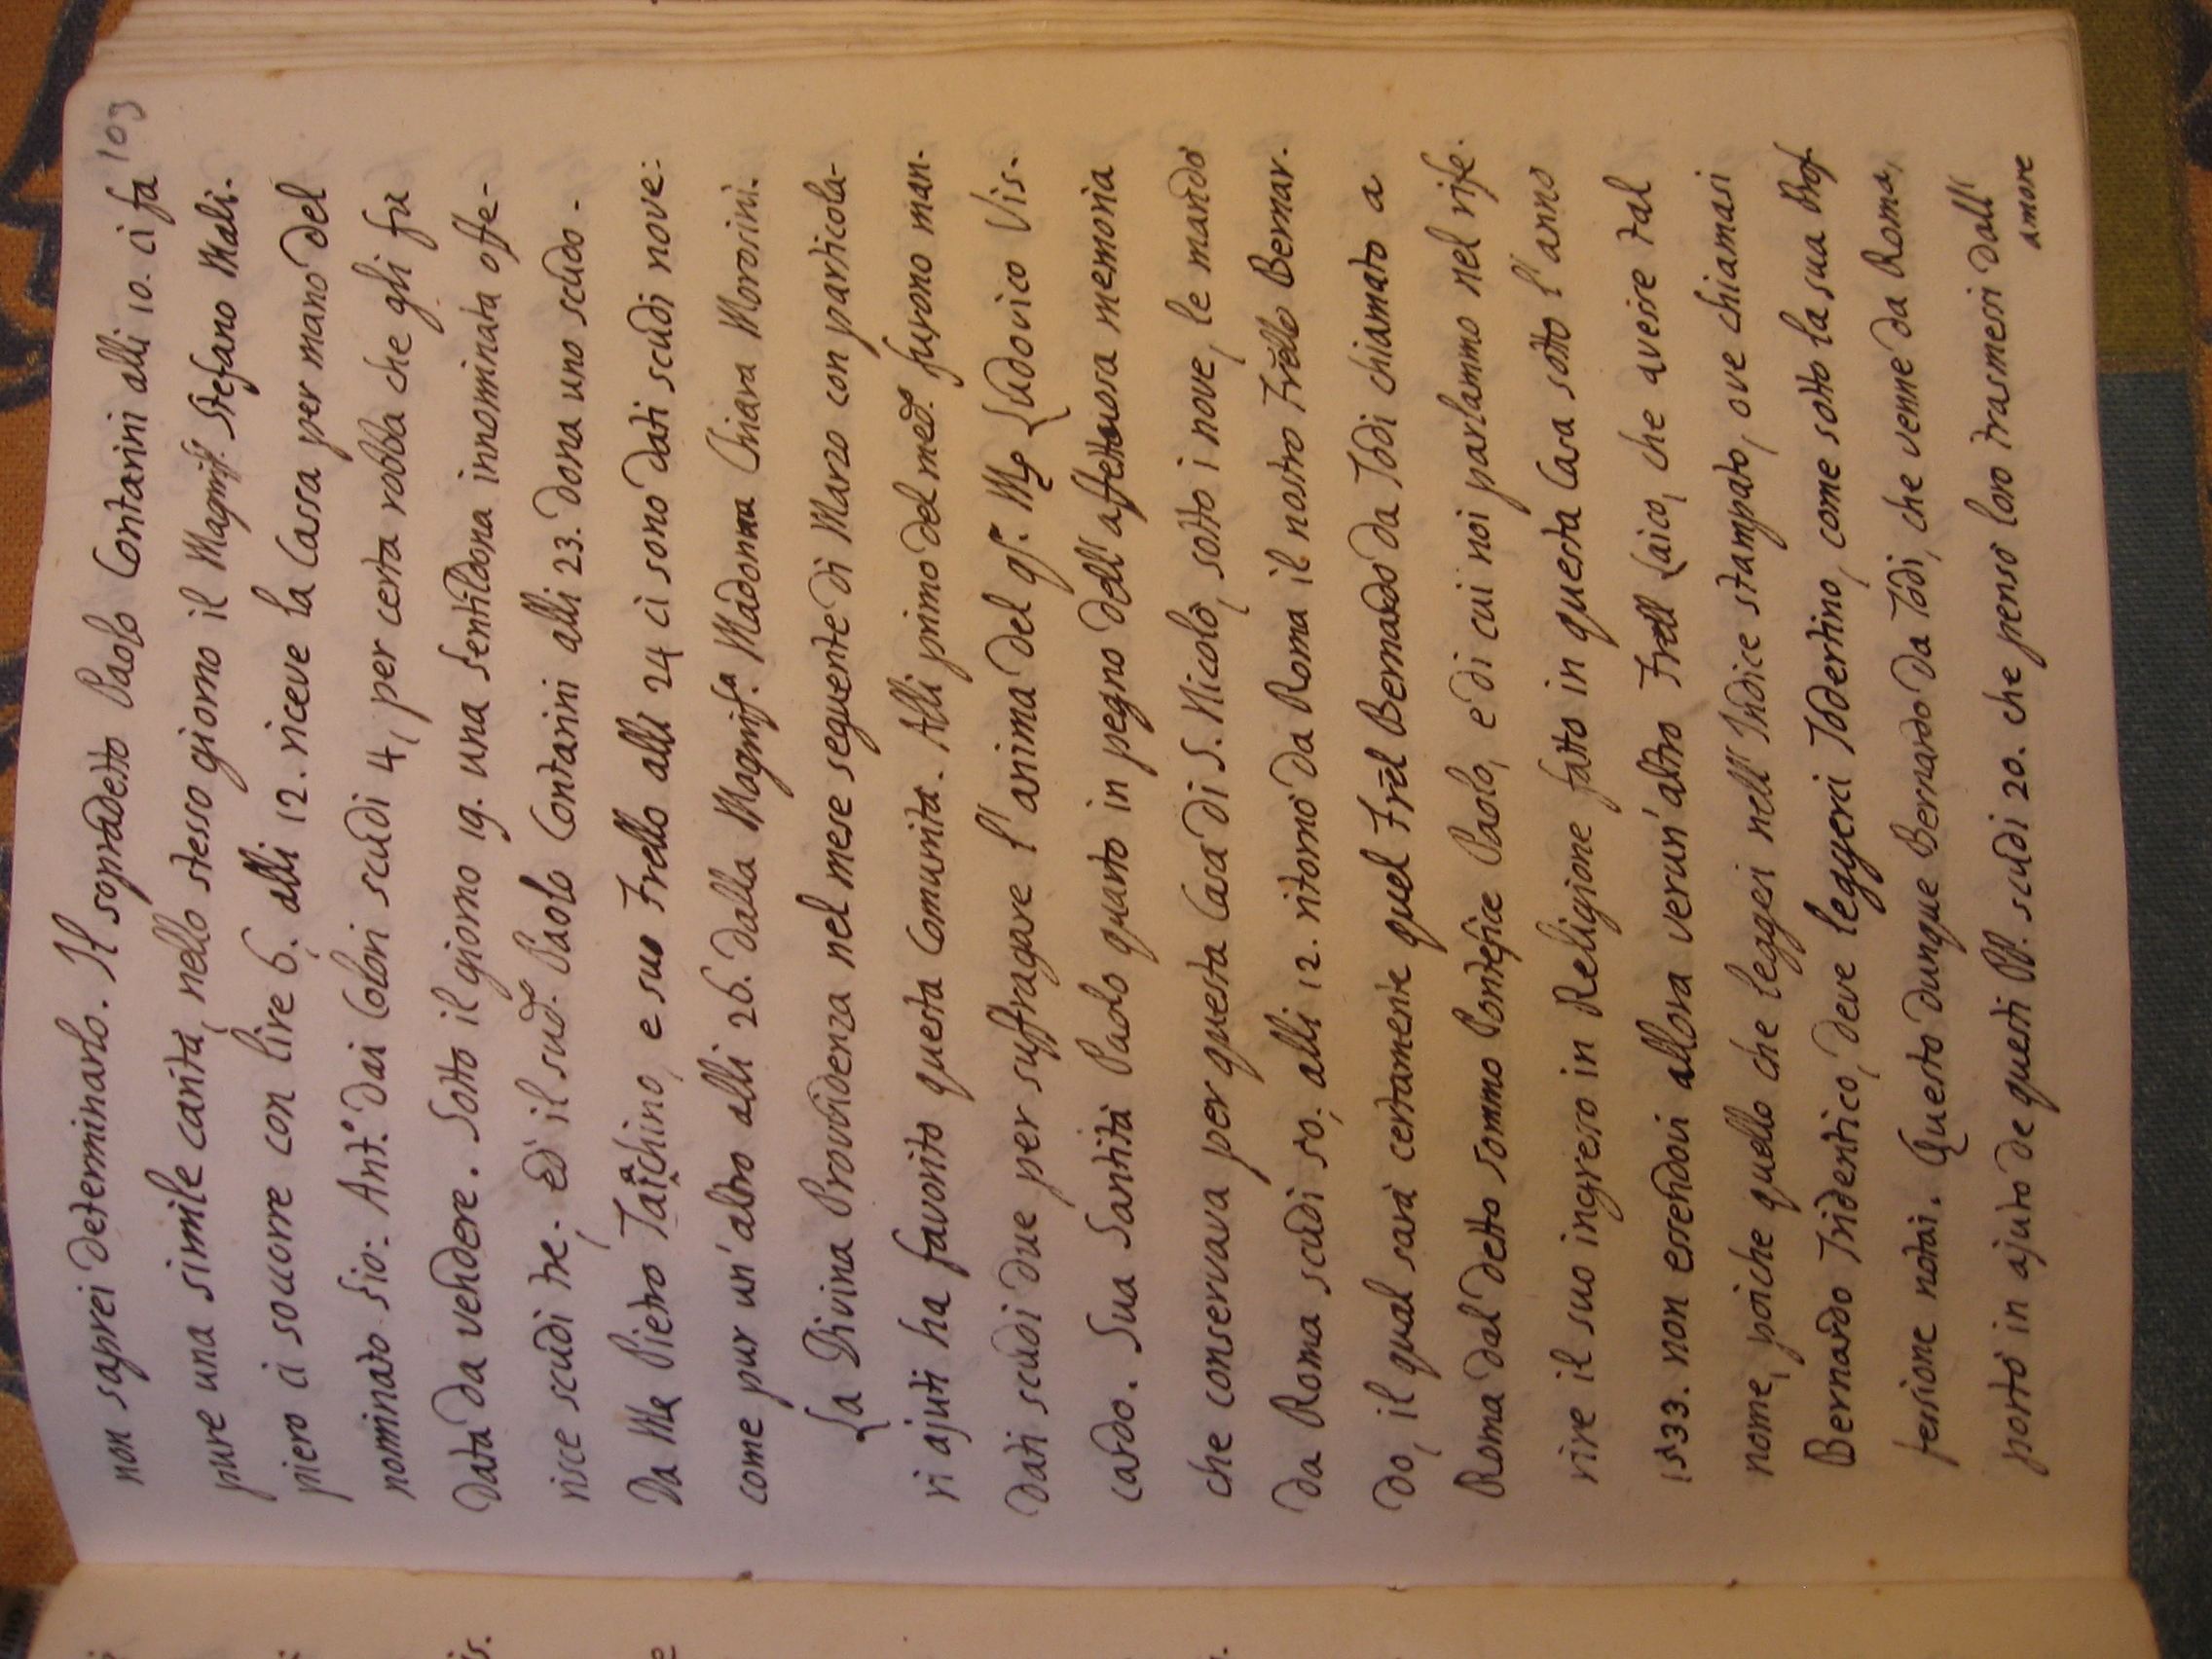 103
non saprei determinarlo. Il sopradetto Paolo Contarini alli 10. ci fa
pure una simile carità, nello stesso giorno il Magnif. Stefano Mali-
piero ci socorre con lire 6. alli 12. riceve la Cassa per mano del
nominato Sio: Ant.o dai Colori scudi 4, per certa robba che gli fu
data da vendere. Sotto il giorno 19. una Gentildona innominata offe-
risce scudi tre. Ed il sud.o Paolo Contarini alli 23. dona uno scudo.
Da Mr Pietro Taiachino, e suo Frello alli 24 ci sono dati scudi nove:
come pur un' altro alli 26. dalla Magnif.a Madonna Chiara Morosini.
La Divina Providenza nel mese seguente di Marzo con particola-
ri ajuti ha favorito questa Comunità. Alli primo del med.o furono man-
dati scudi due per suffragare l'anima del qr. Mr Ludovico Vis-
cardo. Sua Santità Paolo quarto in pegno dell' affettuosa memoria
che conservava per questa Casa di S. Nicolò, sotto i nove, le mandò
da Roma scudi 50. alli 12. ritornò da Roma il nostro Frello Bernar-
do, il qual sarà certamente quel Frel Bernardo da Todi chiamato a
Roma dal detto sommo Pontefice Paolo, e di cui noi parlammo nel rife-
rire il suo ingresso in Religione fatto in questa Casa sotto l'anno
1533. non essendovi allora verun' altro Frell Laico, che avesse tal
nome, poiche quello che leggesi nell' Indice stampato, ove chiamasi
Bernardo Tridentico, deve leggersi Todertino, come sotto la sua Prof-
fessione notai. Questo dunque Bernardo da Todi, che venne da Roma,
portò in ajuto de questi PP. scudi 20. che penso loro trasmessi dall'
amore